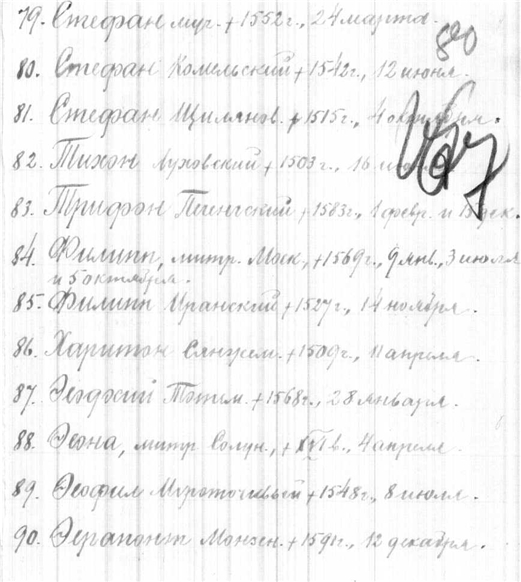 79. Стефан муч. +1552г., 24 марта.
80. Стефан Комельский +1542г., 12 июня.
81. Стефан Щилянов. +1515г., 4 октября.
82. Тихон Луховский +1503г., 16
83. Трифон Печенгский +1583г., 1 февр. и 15 дек.
84. Филипп, митр. Моск., +1569г., 9 янв., 3 июля
и 5 октября.
85. Филипп Иранский +1527г., 14 ноября.
86. Харитон Сянжем. +1509г., 11 апреля.
87. Ѳеодосий Тотем. +1568г., 28 января.
88. Ѳеона, митр. Солун., + XVI в., 4 апреля.
89. Ѳеофил Мироточивый +1548г., 8 июля.
90. Ѳерапонт Монзен. +1591г., 12 декабря.